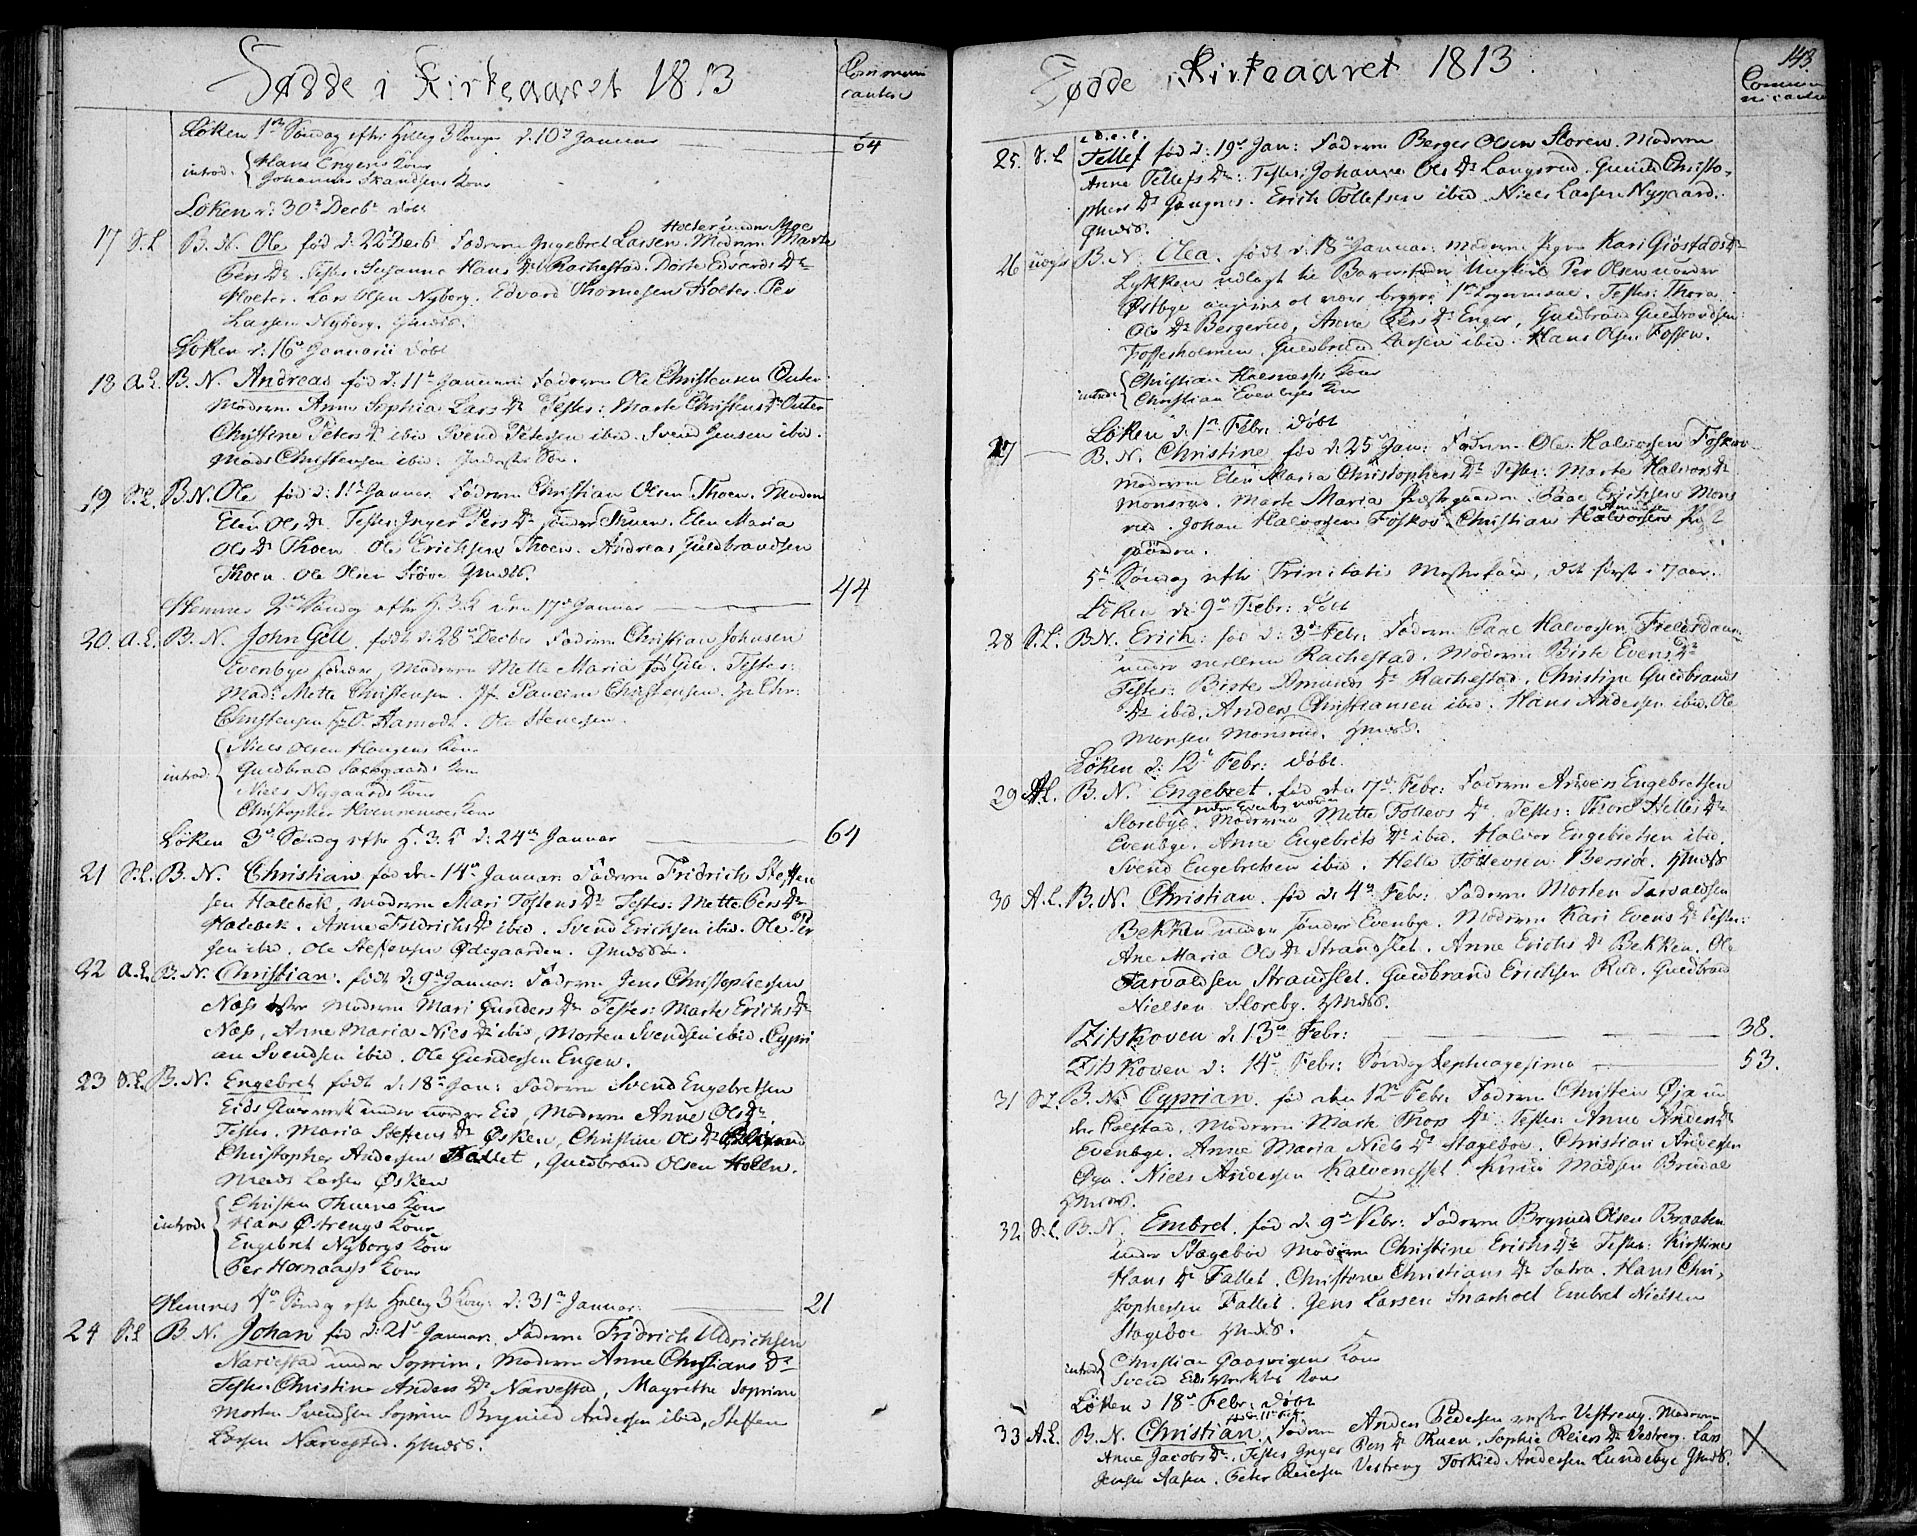 Fødde i Kirkeaaret 1813
Communi
cantere
Løken 1ste Søndag efter Hellig 3 Konger d: 10de Januar
64
introd: Hans Engens Kone
Johannes Skandsens Kone
Løken d: 30te Decbr døbt
Holter under Moe
17 S.L. B.N. Ole fød d: 22de Decb Faderen Ingebret Larsen. Moderen Marte
Pers Dr. Testes: Susanna Hans Dr Rachestad. Dorte Edvards Dr
Holter. Lars Olsen Nyborg. Edvard Thomesen Holter. Per
Larsen Nyborg. Gmds.
Løken d: 16de Januarii døbt
18 A.L. B.N. Andreas fød d: 11te Januarii Faderen Ole Christensen Outer
Moderen Anne Sophia Lars Dr Testes: Marte Christens Dr Outer
Christine Peters Dr ibid Svend Petersen ibid. Svend Jensen ibid.
Mads Christensen ibid.
19 S.L. B.N. Ole fød d: 11te Januar. Faderen Christian Olsen Thoen. Moderen
Elen Ols Dr Testes: Inger Pers Dr søndre Thuen. Elen Maria
Ols Dr Thoen. Ole Erichsen Thoen. Andreas Guldbrandsen
Thoen. Ole Olsen Gmds.
Hemnes 2den Søndag efter H. 3 K den 17de Januar
44
20. A.L. B.N. John Gell født d: 28de Decbr Faderen Christian Johnsen
Evenbye søndre, Moderen Mette Maria fød Gell. Testes:
Mad: Mette Christensen. Jf. Christensen. Hr Chr:
Christensen Hr O. Hamodt. Ole Stenersen.
introd: Niels Olsen Haugens Kone
Guldbrand Kone
Niels Nygaards Kone
Christopher Kone
Løken 3die Søndag efter H. 3. K d: 24de Januar
64
21 S.L. B.N. Christian fød den 14de Januar. Faderen Fridrich Steffen
sen Halebek, Moderen Mari Tostens Dr Testes: Mette Pers Dr
Halebek. Anne Fridrichs Dr ibid. Svend Erichsen ibid. Ole Per
sen ibid. Ole Steffensen Ødegaarden. Gmds.
22 A.L. B.N. Christian. født d: 9de Januar. Faderen Jens Christophersen
Næss Moderen Mari Gunders Dr Testes: Marte Erichs Dr
Næss, Anne Maria Niels Dr ibid, Morten Svendsen ibid. Cypri
an Svendsen ibid. Ole Gundersen Engen.
23 S.L. B.N. Engebret født d: 18de Jan: Faderen Svend Engebretsen
Eids under nordre Eid, Moderen Anne Ols Dr
Testes. Maria Steffens Dr Øsken, Christine Ols Dr
Christopher Andersen Fallet, Guldbrand Olsen Holen.
Mads Larsen Øsken
introd: Christen Thuens Kone
Hans Kone
Engebret Nyborgs Kone
Per Hornaass Kone
Hemnes 4de Søndag efter Hellig 3 Kong: d: 31te Januar:
21
24 S.L. B.N. Johan fød d: 21de Januar. Faderen Fridrich Uldrichsen
Narvestad under Soprim. Moderen Anne Christians Dr
Testes. Christine Anders Dr Narvestad, Magrethe Soprim
Morten Svendsen Soprim Brynild Andersen ibid, Steffen
Larsen Narvestad. Gmds.
Fødde i Kirkeaaret 1813.
143
Commu
nicantere
25. S.L. Tellef fød d: 19de Jan: Faderen Berger Olsen Floren. Moderen
Anne Tellefs Dr: Testes: Johanne Ols Dr Langsrud. Gunild Christo-
phers Dr Gangnes. Erich Tollefsen ibid. Niels Larsen Nygaard.
Gmds.
26 uægte B.N. Olea. født d: 18de Januar: Moderen Pigen Kari Giøstads Dr
Lykken udlagt til Barnefader Ungkarl Per Olsen nordre
Østbye angives at være begges 1ste Leyermaal. Testes: Thora
Ols Dr Bergerud, Anne Pers Dr Enger, Guldbrand Guldbrandsen
Fossesholmen. Guldbrand Larsen ibid. Hans Olsen Fossen.
introd: Christian Kone
Christian Evenbyes Kone
Løken d: 1ste Febr: døbt
27 B.N. Christine fød d: 25de Jan: Faderen Ole Halvorsen Foskov
Moderen Elen Maria Christophers Dr Testes: Marte Halvors Dr
Monsrud. Marte Maria Præstegaarden. Paal Erichsen Mons
rud. Johan Halvorsen Foskov. Christian Halvorsen
gaarden.
5te Søndag efter Trinitatis Mestefald, det første i 7 aar.
Løken d: 9de Febr: døbt
28 S.L. B.N. Erich: fød d: 3die Febr: Faderen Paal Halvorsen
under mellem Rachestad. Moderen Birte Evens Dr
Testes: Birte Amunds Dr Rachestad. Christine Guldbrands
Dr ibid. Anders Christiansen ibid. Hans Andersen ibid. Ole
Monsen Monsrud. Gmds.
Løken d: 12te Febr: døbt.
29 A.L. B.N. Engebret. fød den 7de Febr: Faderen Anven Engebretsen
under Evenby nordre
Slorebye. Moderen Mette Tollevs Dr Testes: Thore Helles Dr
Evenbye. Anne Engebrets Dr ibid. Halvor Engebretsen ibid.
Svend Engebretsen ibid. Helle Tollevsen Berside. Gmds
30 A.L. B.N. Christian. fød d: 4de Febr: Faderen Morten Tarvaldsen
Bekken under søndre Evenbye. Moderen Kari Evens Dr Testes:
Ane Maria Ols Dr Strandslet. Anne Erichs Dr Bekken. Ole
Tarvaldsen Strandslet. Guldbrand Erichsen Rud. Guldbrand
Nielsen Sloreby. Gmds.
Zitskoven d: 13de Febr:
38.
Zitskoven d: 14de Febr: Søndag Septuagesima
53.
31 S.L. B.N. Cyprian. fød den 12te Febr. Faderen Christen Øja un
der Colstad. Moderen Marte Thors Dr Testes: Anne Anders Dr
Evenbye. Anne Maria Niels Dr Stageboe. Christian Andersen
Øya. Niels Andersen Kalvenesset. Knud Madsen Brudal
Gmds.
32 S.L. B.N. Embret. fød d. 9de Febr: Faderen Brynild Olsen Braaten
under Stageboe Moderen Christine Erichs Dr Testes: Kirstine
Hans Dr Fallet. Christone Christians Dr Sætra. Hans Chri-
stophersen Fallet. Jens Larsen Snarholt Embret Nielsen
Stageboe Gmds.
introd: Christian Gaasvigens Kone
Svend Eidsverkets Kone
Løken d 18de Febr: døbt
fød d: 11te Febr
33 A.L. B.N. Christian. Faderen Anders Pedersen vestre Vestreng. Moderen
Anne Jacobs Dr. Testes Inger Pers Dr Thuen. Sophie Reiers Dr Vestreng. Lars
Jensen Aasen. Peter Reiersen Vestreng Torkild Andersen Lundebye Gmds.
X